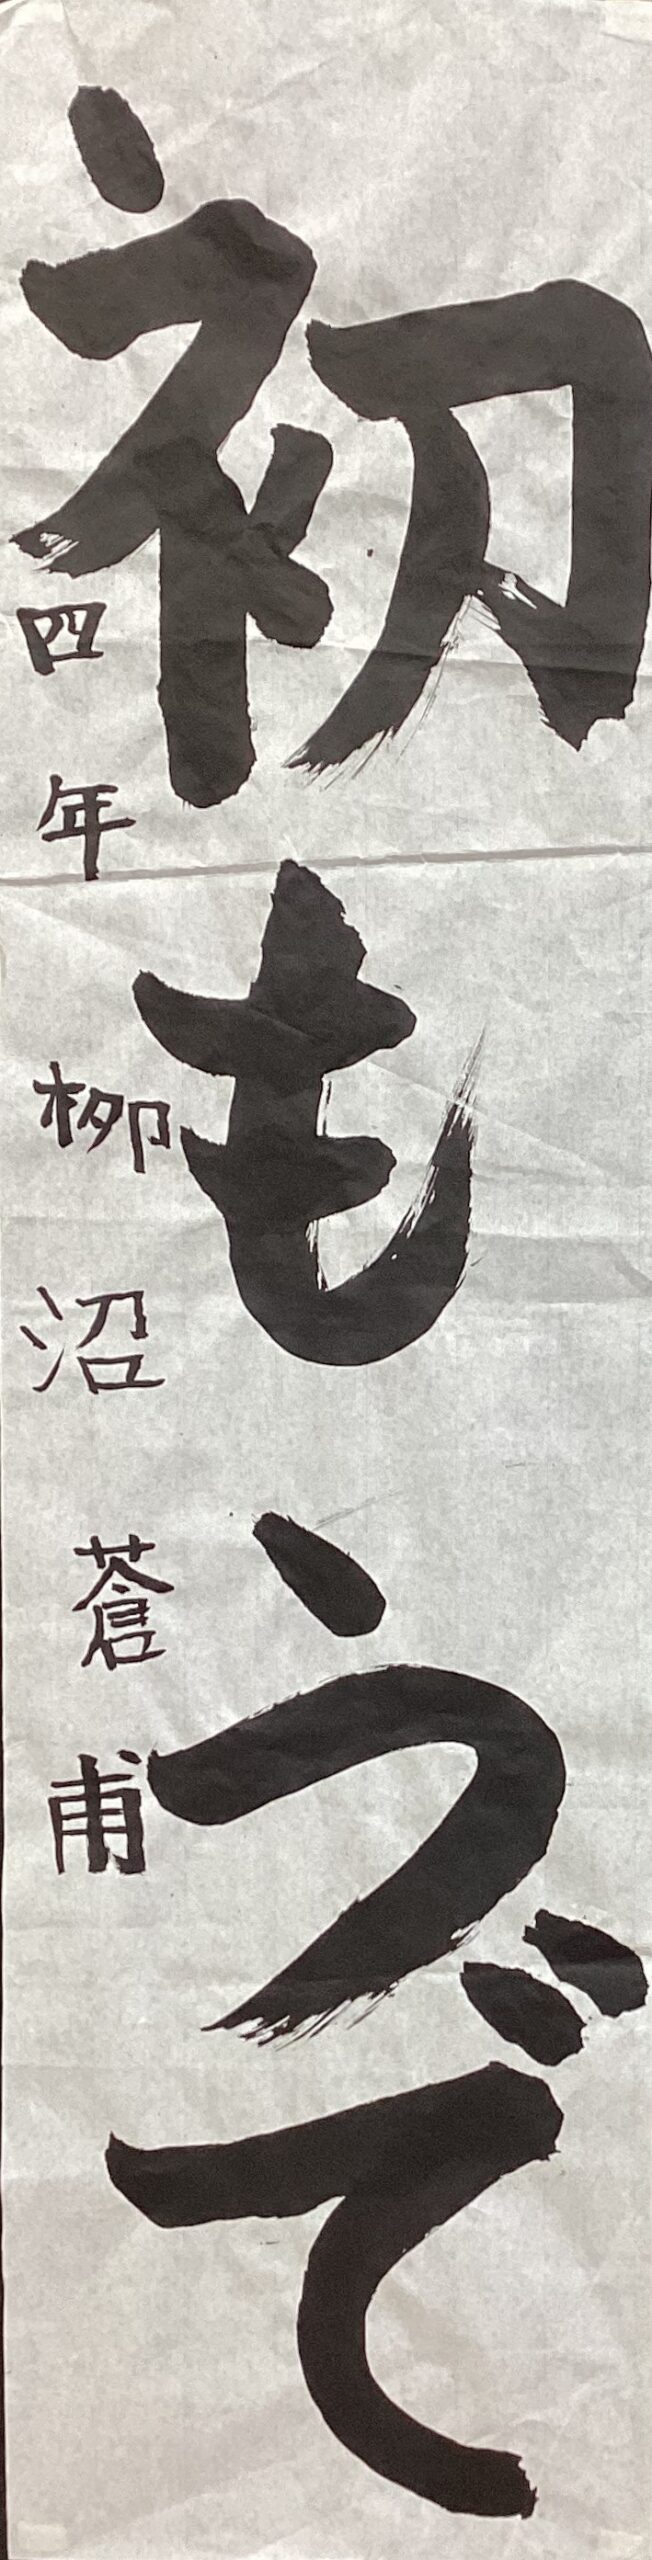 初もうで
四年 柳沼蒼甫